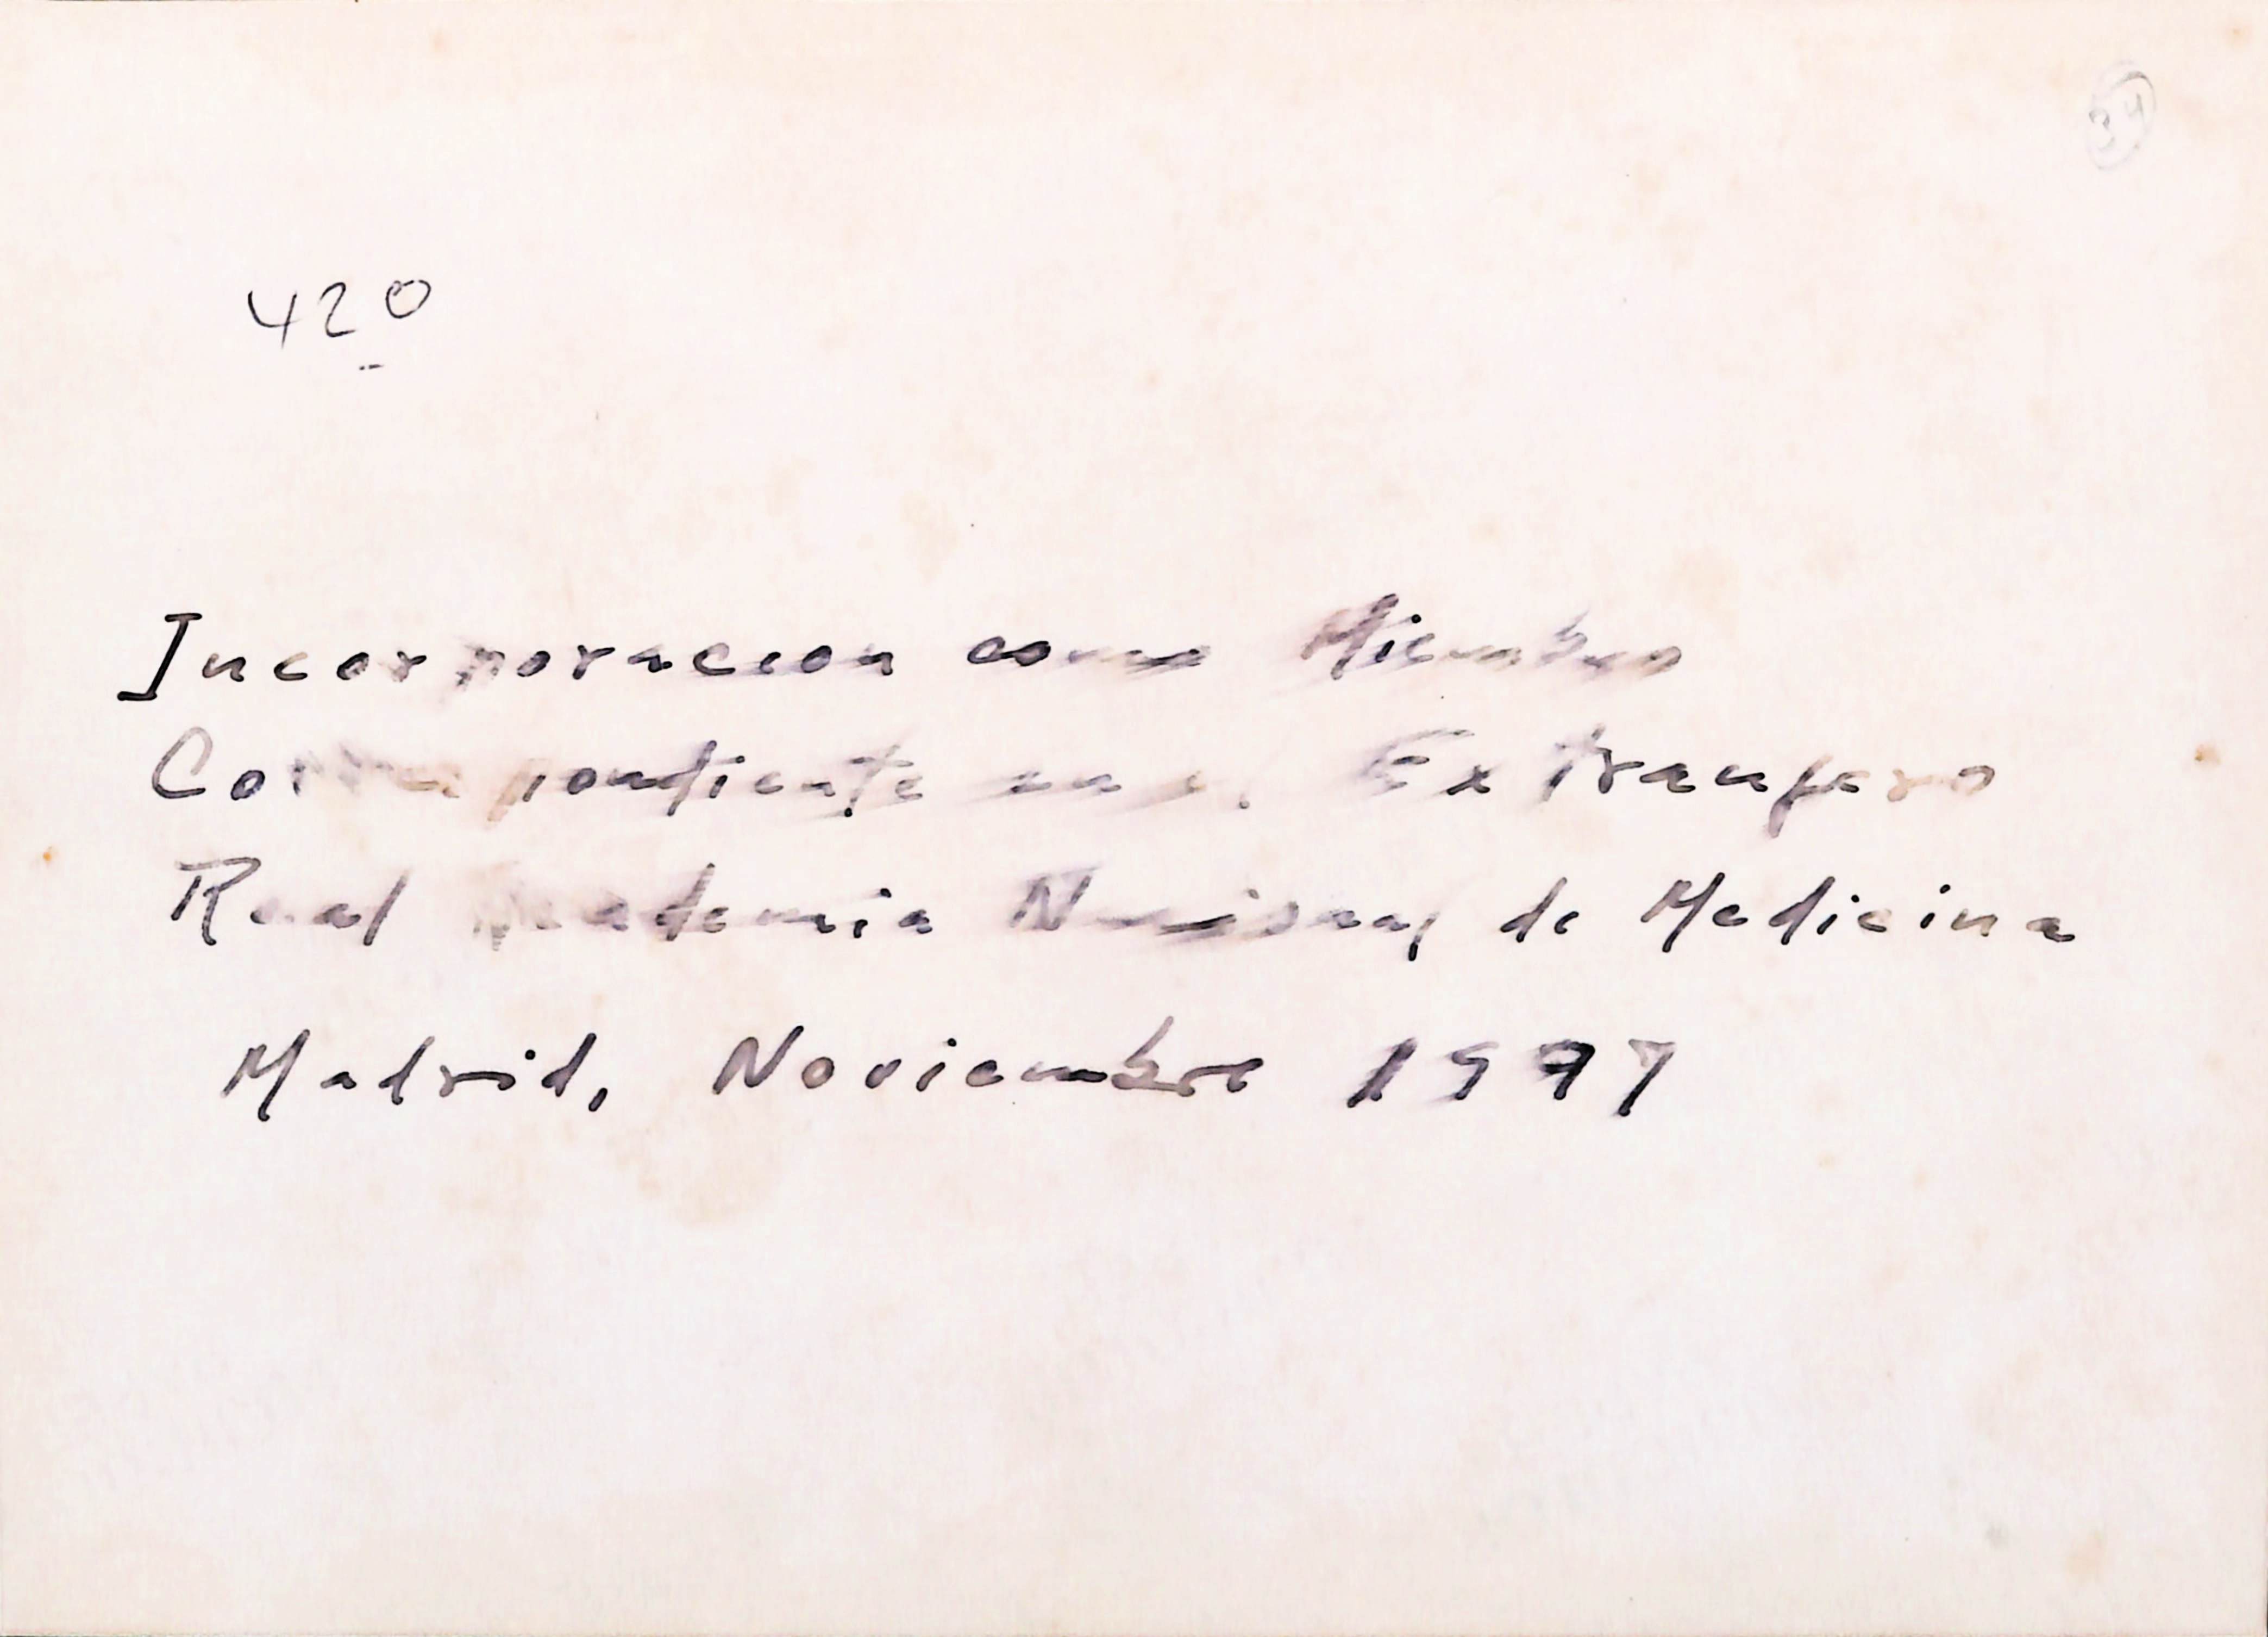 34
420
Incorporacion como Miembro
Correspondiente en el Extranjero
Real Academia Nacional de Medicina
Madrid, Noviembre 1997